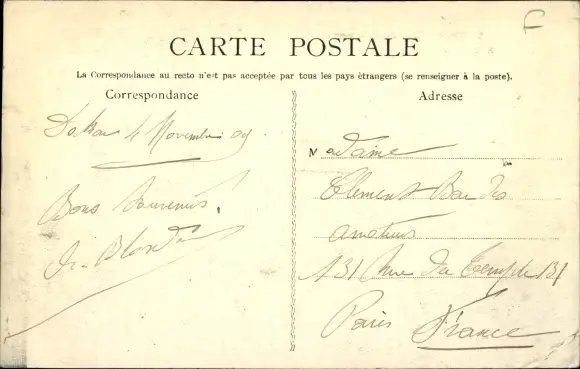 CARTE POSTALE
La Correspondance au recto n'est pas acceptée par tous les pays étrangers (se renseigner à la poste).
Correspondance
Dakar 4 Novembre 09
Bons Souvenirs.
Adresse
Madame
Clément
131 Rue du Temple 131
Paris France